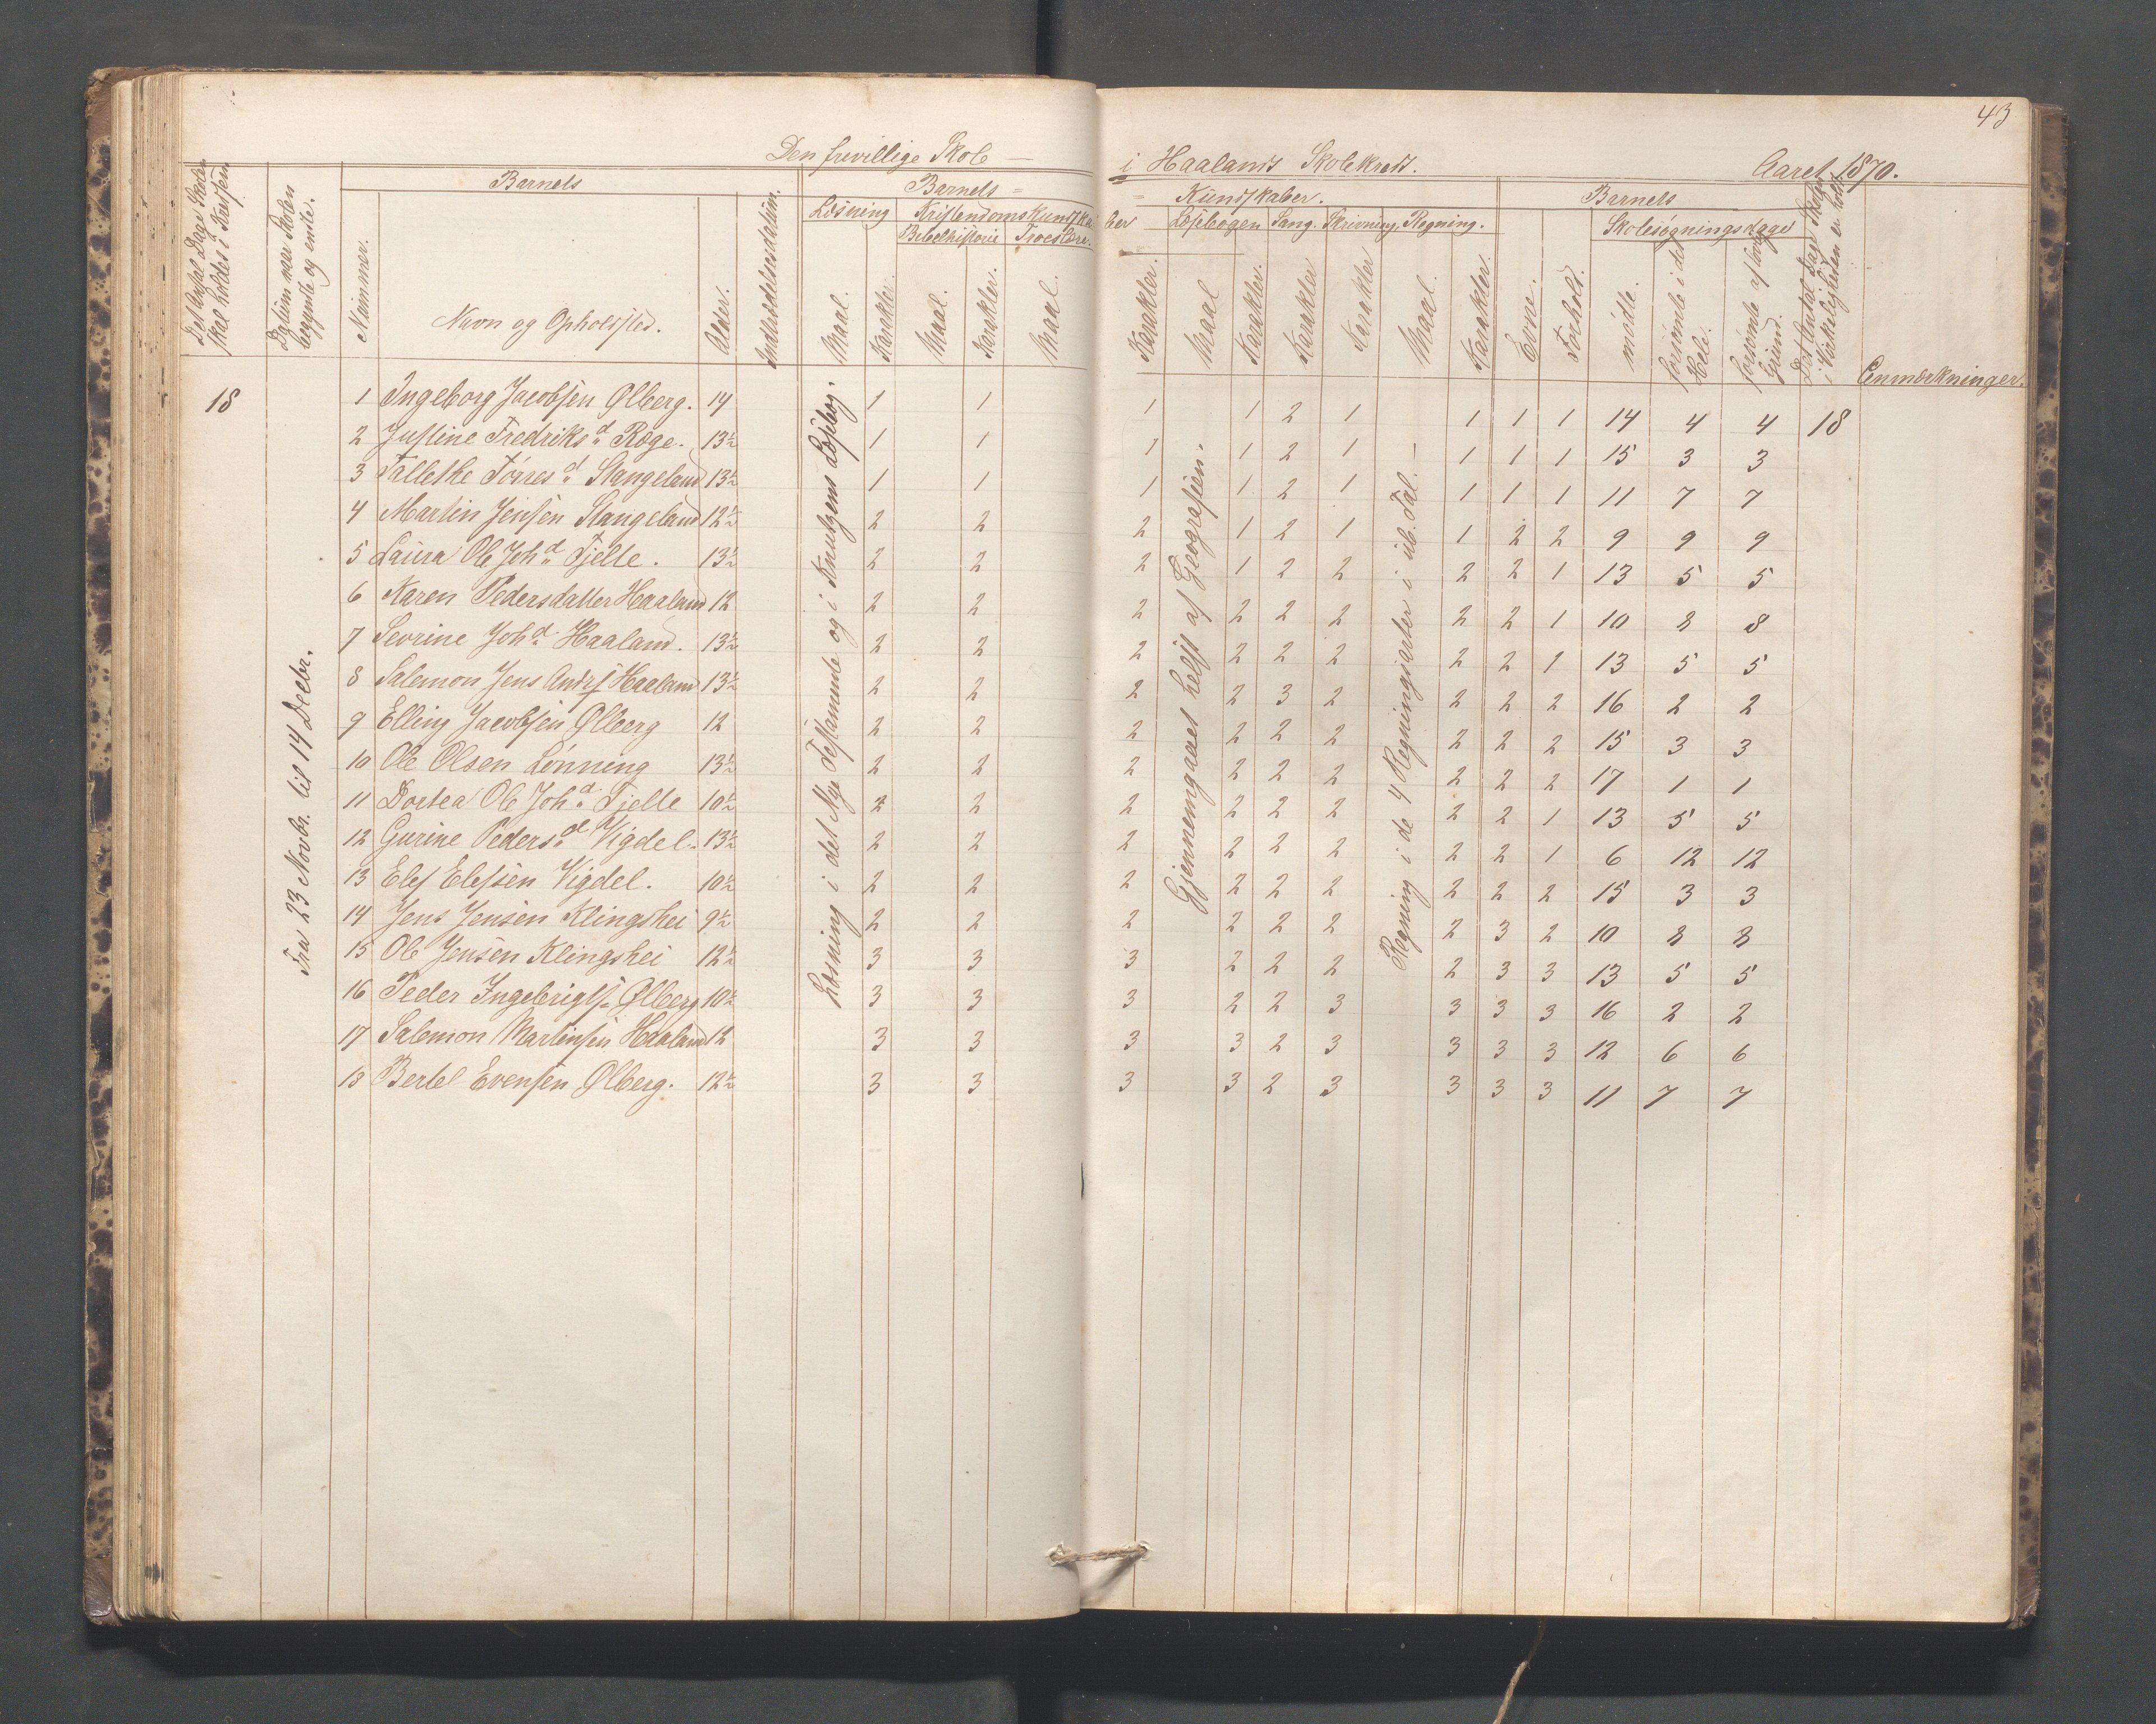 43
Den frivillige Skole — i Haalands Skolekreds. Aaret 1870.
Det Antal Dage Skolen skal holdes i Kredsen
Datum naar Skolen begyndte og endte.
Barnets
Nummer.
Navn og Opholdsted.
Alder.
Indtrædelsesdatum.
Barnets = = Kundskaber.
Læsning
Kristendomskundskaber
Bibelhistorie Troeslære.
Læsebogen Sang. Skrivning. Regning.
Maal. Karakter. Maal. Karakter. Maal. Karakter. Maal Karakter. Karakter Karakter Maal. Karakter.
Barnets
Evne. Forhold.
Skolesøgningsdage
mødte. forsømte i det Hele. forsømte af lovlig Grund.
Det Antal Dage Skolen i Virkeligheden er holdt
Anmærkninger.
18
Fra 23 Novbr. til 14 Decbr.
Læsning i det Nye Testamente og i Knutzens Læsebog.
Gjennemgaaet helst af Geografien.
Regning i de 4 Regningsarter i ub. Tal. —
1 Ingeborg Jacobsen Ølberg. 14 1 1 1 1 2 1 1 1 1 14 4 4 18
2 Justine Fredriksd Røge. 13½ 1 1 1 1 2 1 1 1 1 15 3 3
3 Tallethe Tørresd Stangeland 13½ 1 1 1 1 2 1 1 1 1 11 7 7
4 Martin Jensen Stangeland 12½ 2 2 2 1 2 1 1 2 2 9 9 9
5 Laura Ole Johd Tjelte. 13½ 2 2 2 1 2 2 2 2 1 13 5 5
6 Karen Pedersdatter Haaland 12 2 2 2 2 2 2 2 2 1 10 8 8
7 Sevrine Johd Haaland. 13½ 2 2 2 2 2 2 2 2 1 13 5 5
8 Salemon Jens Andrs Haaland 13½ 2 2 2 2 3 2 2 2 2 16 2 2
9 Elling Jacobsen Ølberg 12 2 2 2 2 2 2 2 2 2 15 3 3
10 Ole Olsen Lønning 13½ 2 2 2 2 2 2 2 2 2 17 1 1
11 Dortea Ole Johd Tjelte 10½ 2 2 2 2 2 2 2 2 1 13 5 5
12 Gurine Pedersd Vigdel. 13½ 2 2 2 2 2 2 2 2 1 6 12 12
13 Elef Elefsen Vigdel. 10½ 2 2 2 2 2 2 2 2 2 15 3 3
14 Jens Jensen Klingshei 9½ 2 2 2 2 2 2 2 3 2 10 8 8
15 Ole Jensen Klingshei 12½ 3 3 3 2 2 2 2 3 3 13 5 5
16 Peder Ingebrigts. Ølberg 10½ 3 3 3 2 2 3 3 3 3 16 2 2
17 Salemon Martinsen Haaland 12 3 3 3 3 2 3 3 3 3 12 6 6
18 Bertel Evensen Ølberg. 12½ 3 3 3 3 2 3 3 3 3 11 7 7